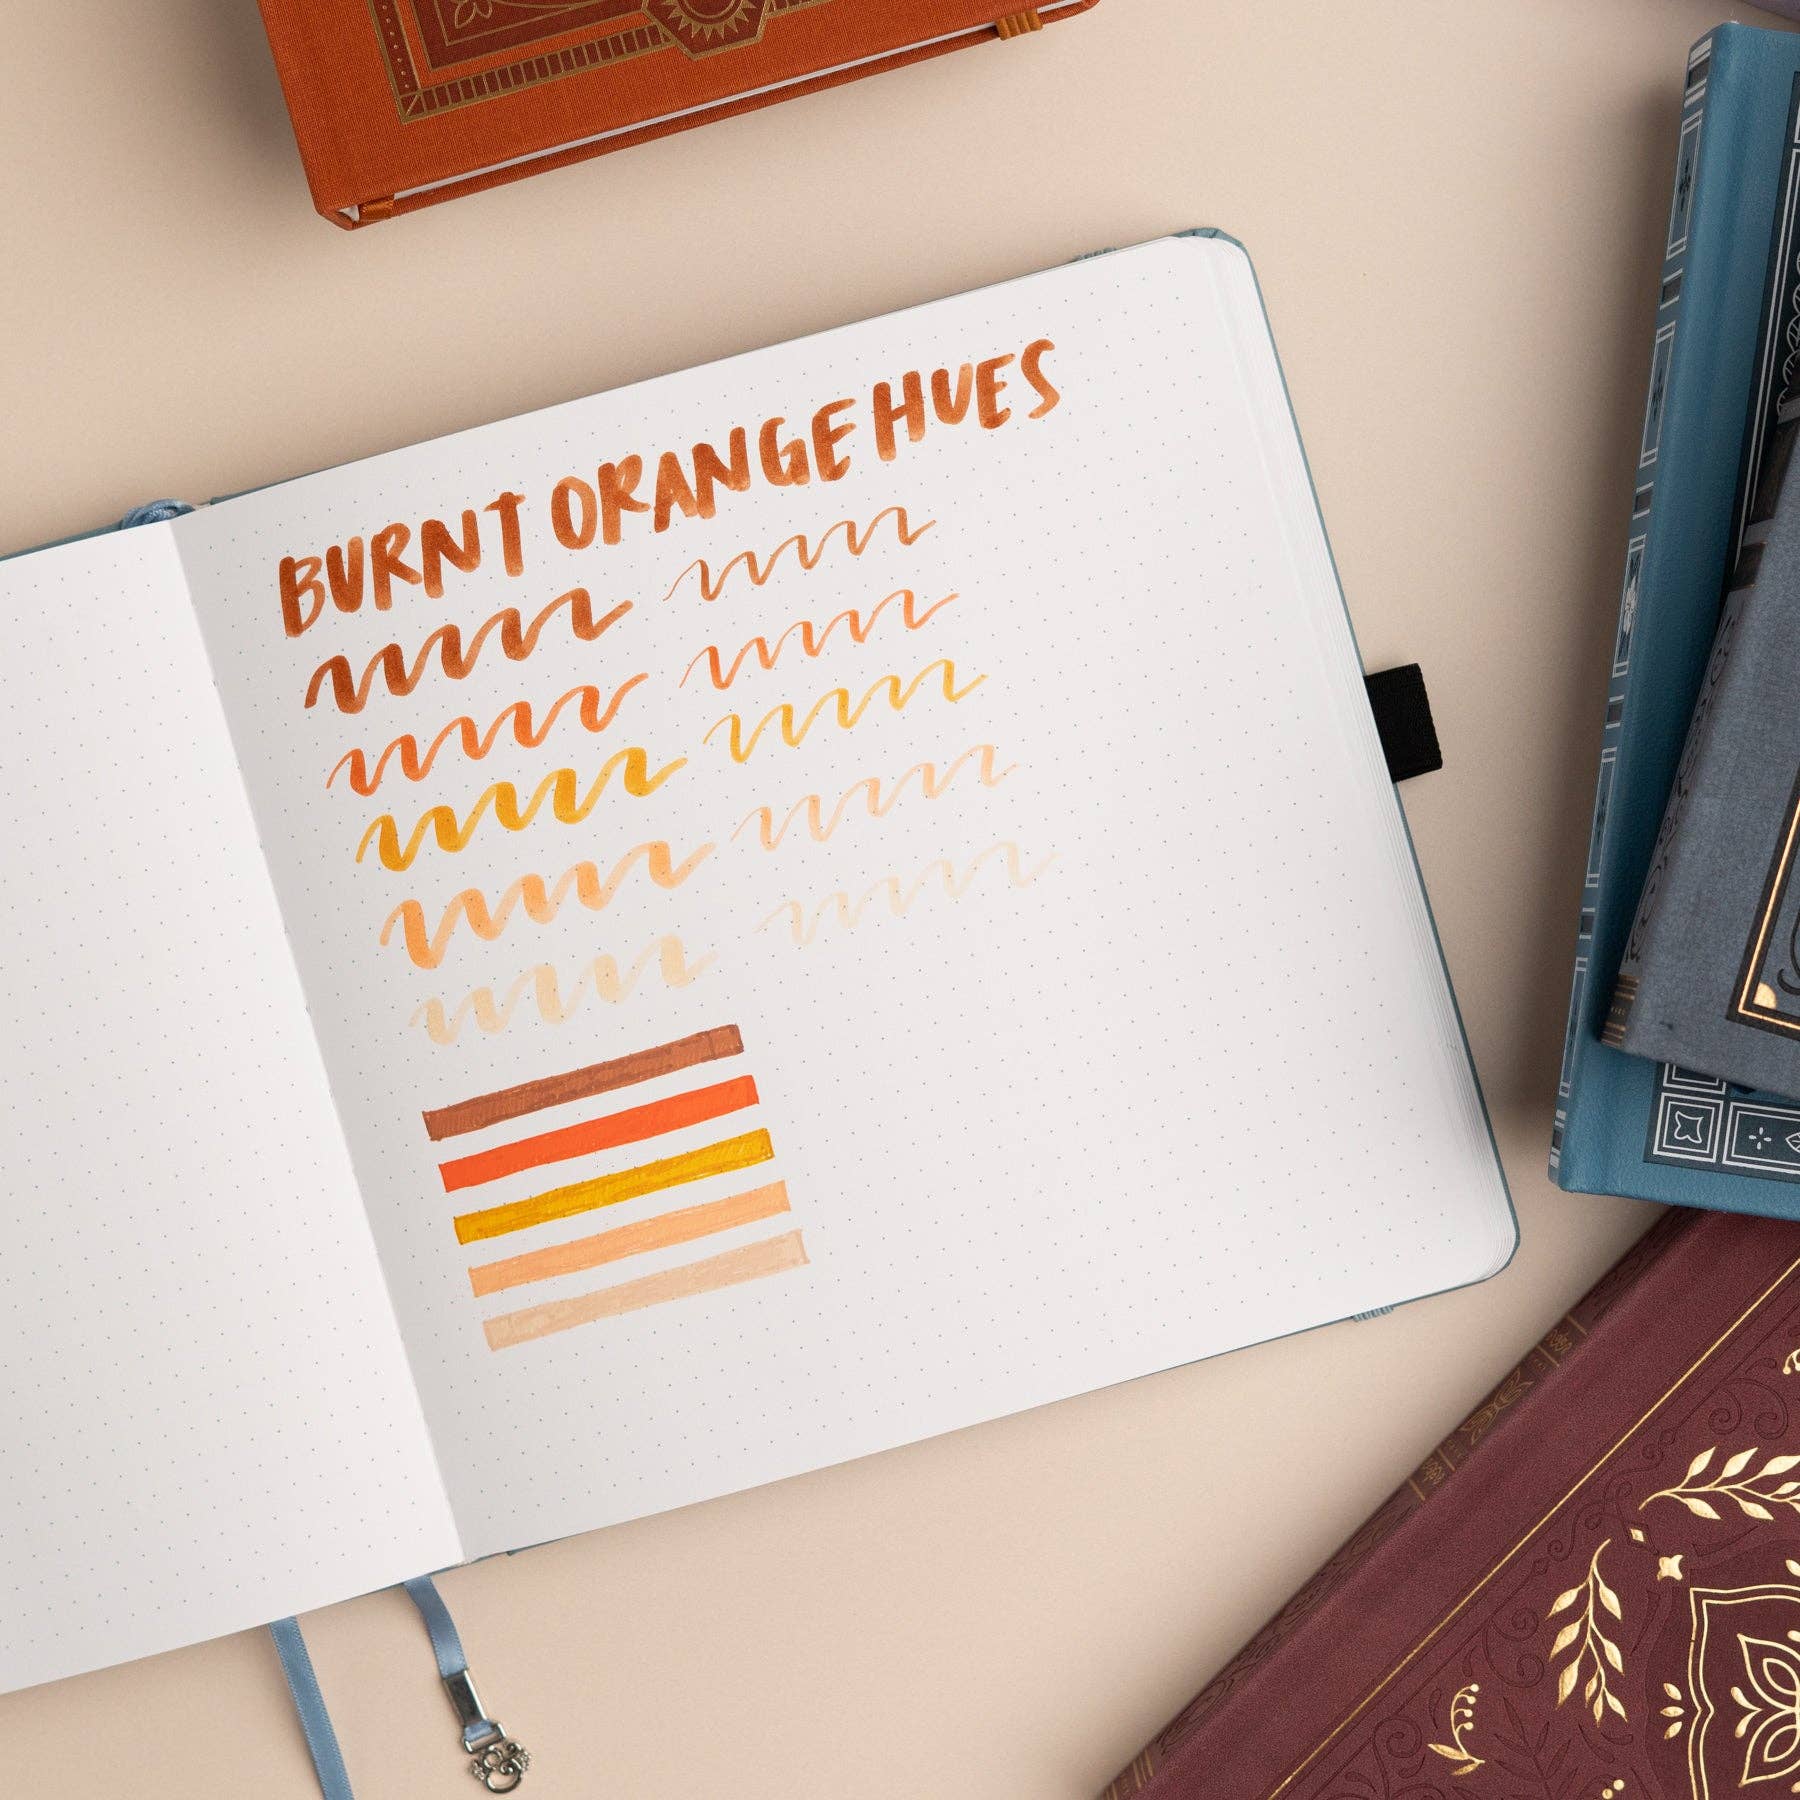 BURNT ORANGE HUES